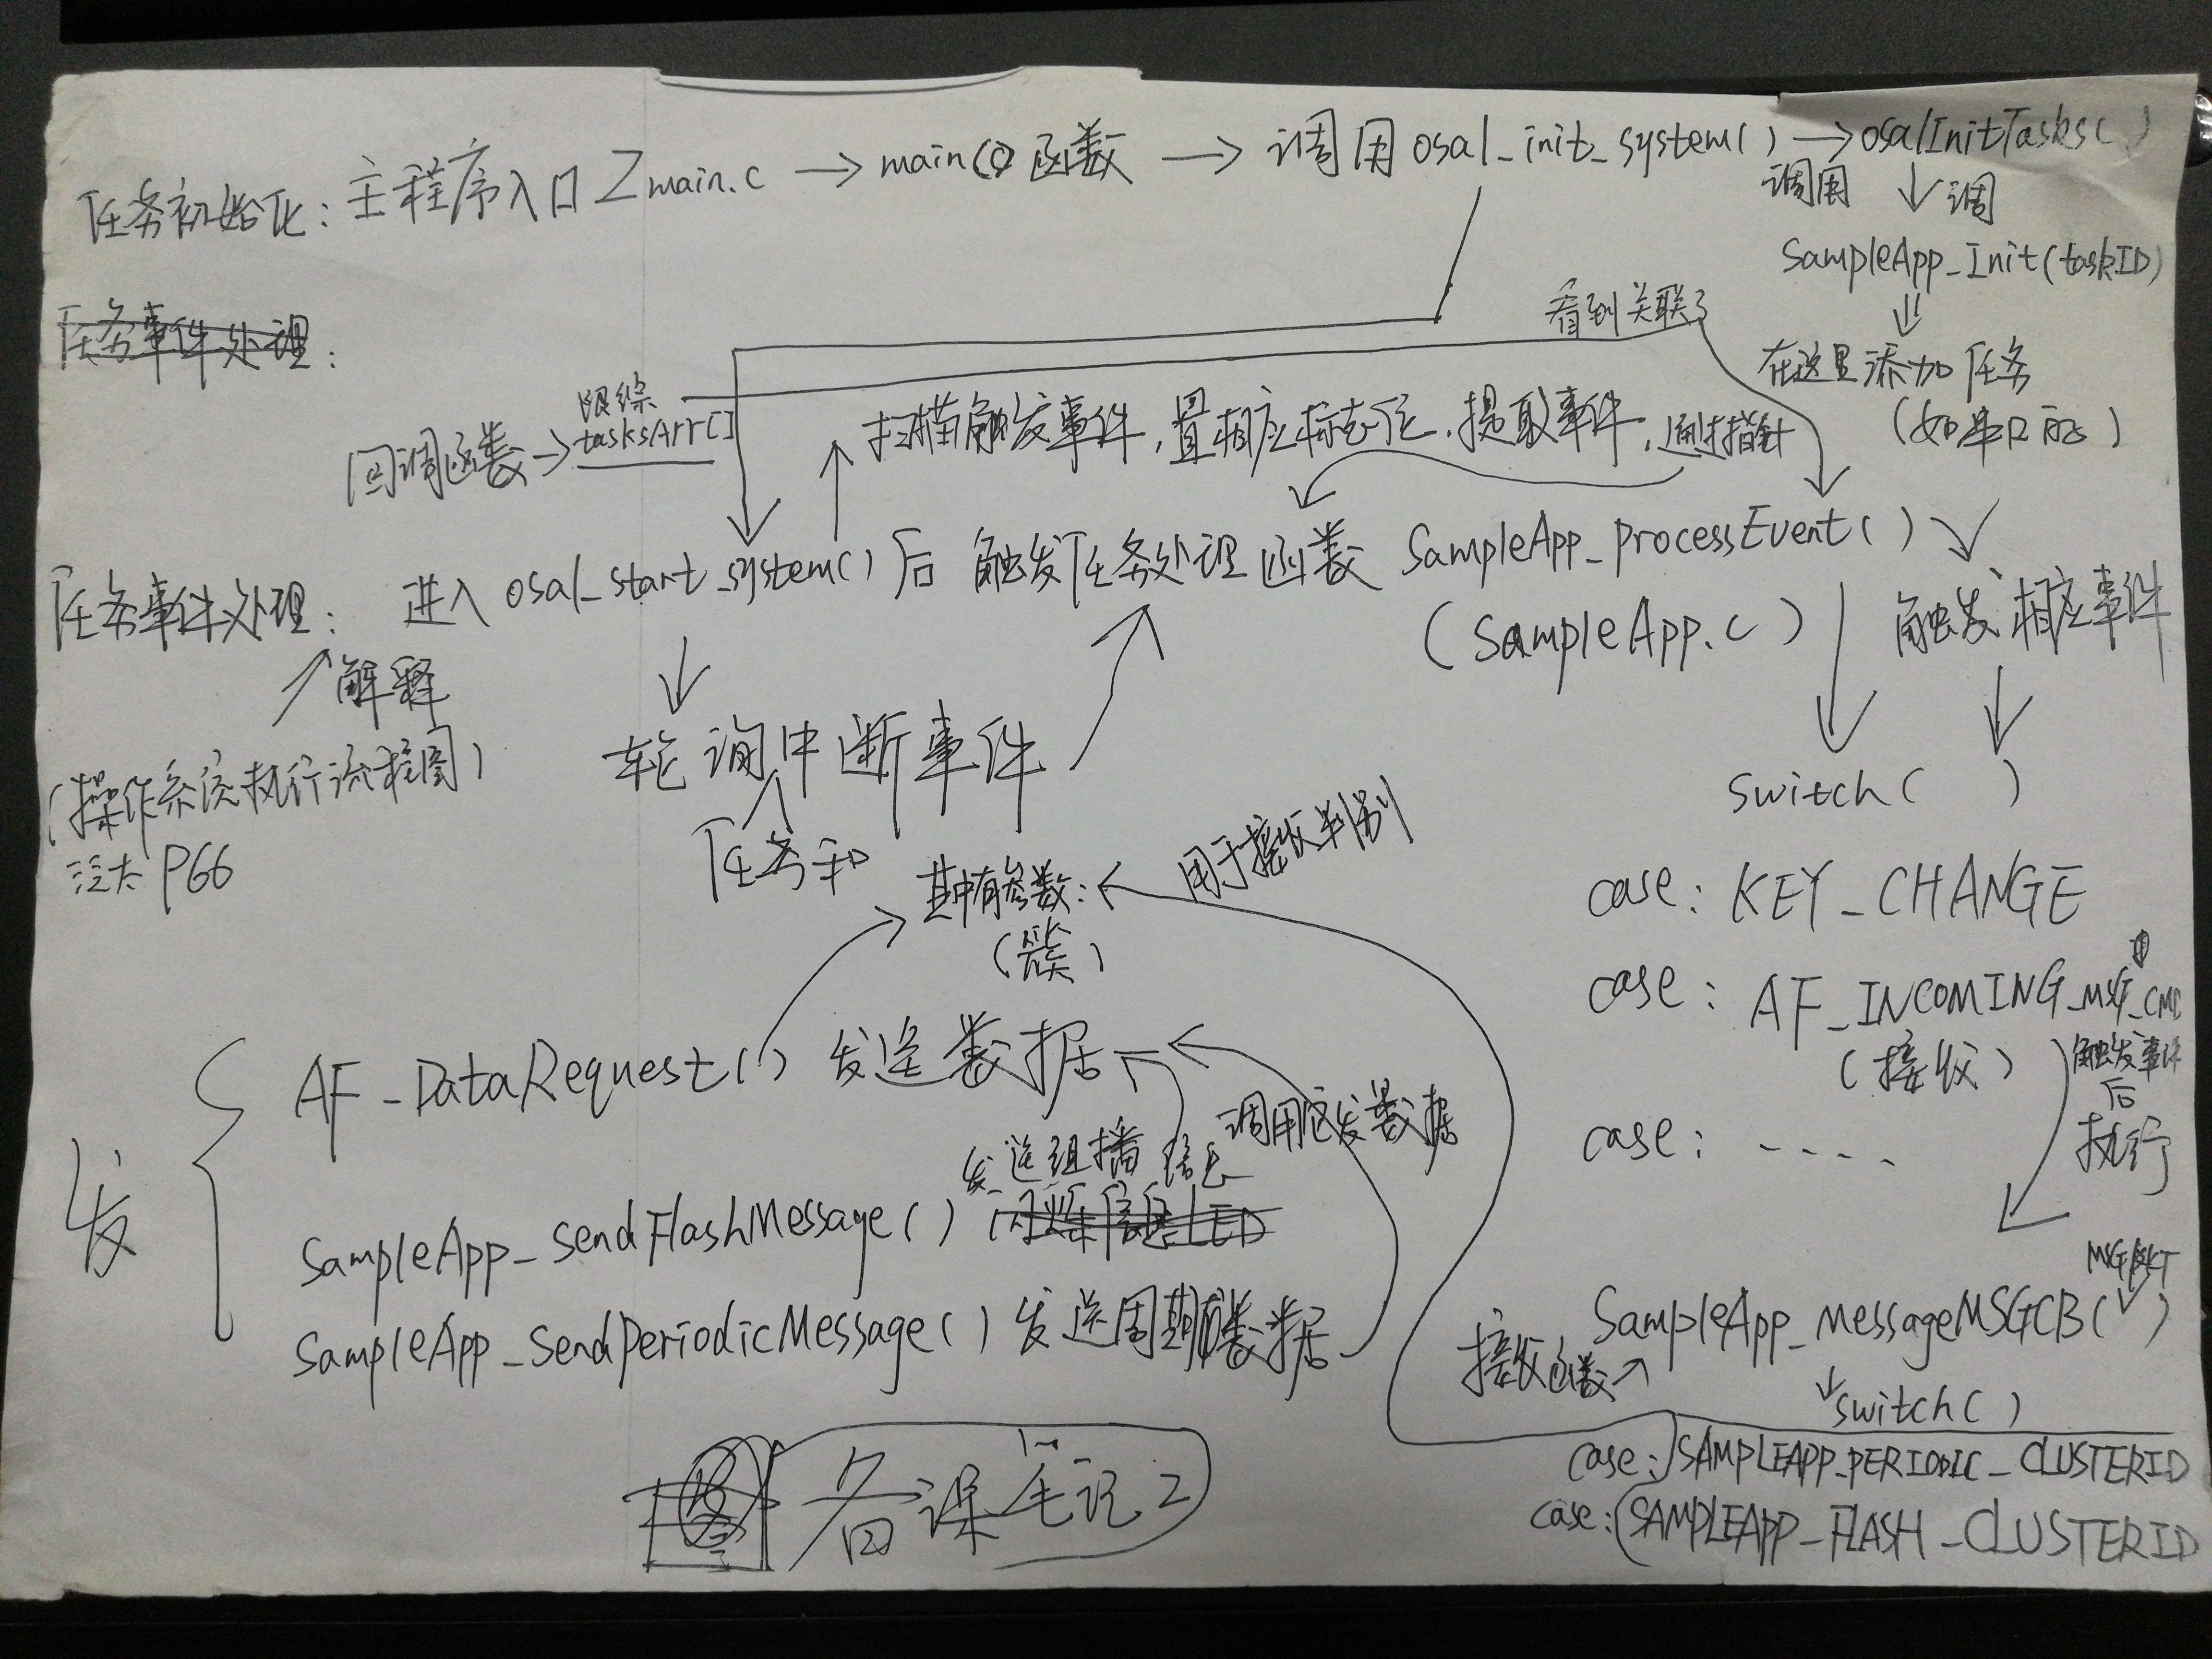 任务初始化：主程序入口 Zmain.c → main() 函数 → 调用 osal_init_system() → osalInitTasks()
调用 ↓ 调
SampleApp_Init(taskID)
⇓
在这里添加任务
看到关联了
任务事件处理：
跟综
回调函数 → tasksArr[]
扫描触发事件，置相应标志位，提取事件，通过指针
任务事件处理： 进入 osal_start_system() 后 触发任务处理函数 SampleApp_ProcessEvent()
(SampleApp.c)
触发相应事件
↗解释
(操作系统执行流程图)
P66
轮询中断事件
任务和
switch( )
case: KEY_CHANGE
case: AF_INCOMING_MSG_CMD
(接收)
触发事件
后
执行
case: ----
其中有参数: ← 用于接收判别
(簇)
发
AF_DataRequest() 发送数据
调用它发数据
发送组播信息
SampleApp_SendFlashMessage() 闪烁信息LED
SampleApp_SendPeriodicMessage() 发送周期数据
MSGPKT
SampleApp_MessageMSGCB( )
接收函数↗
switch()
case: SAMPLEAPP_PERIODIC_CLUSTERID
case: SAMPLEAPP_FLASH_CLUSTERID
备课笔记2